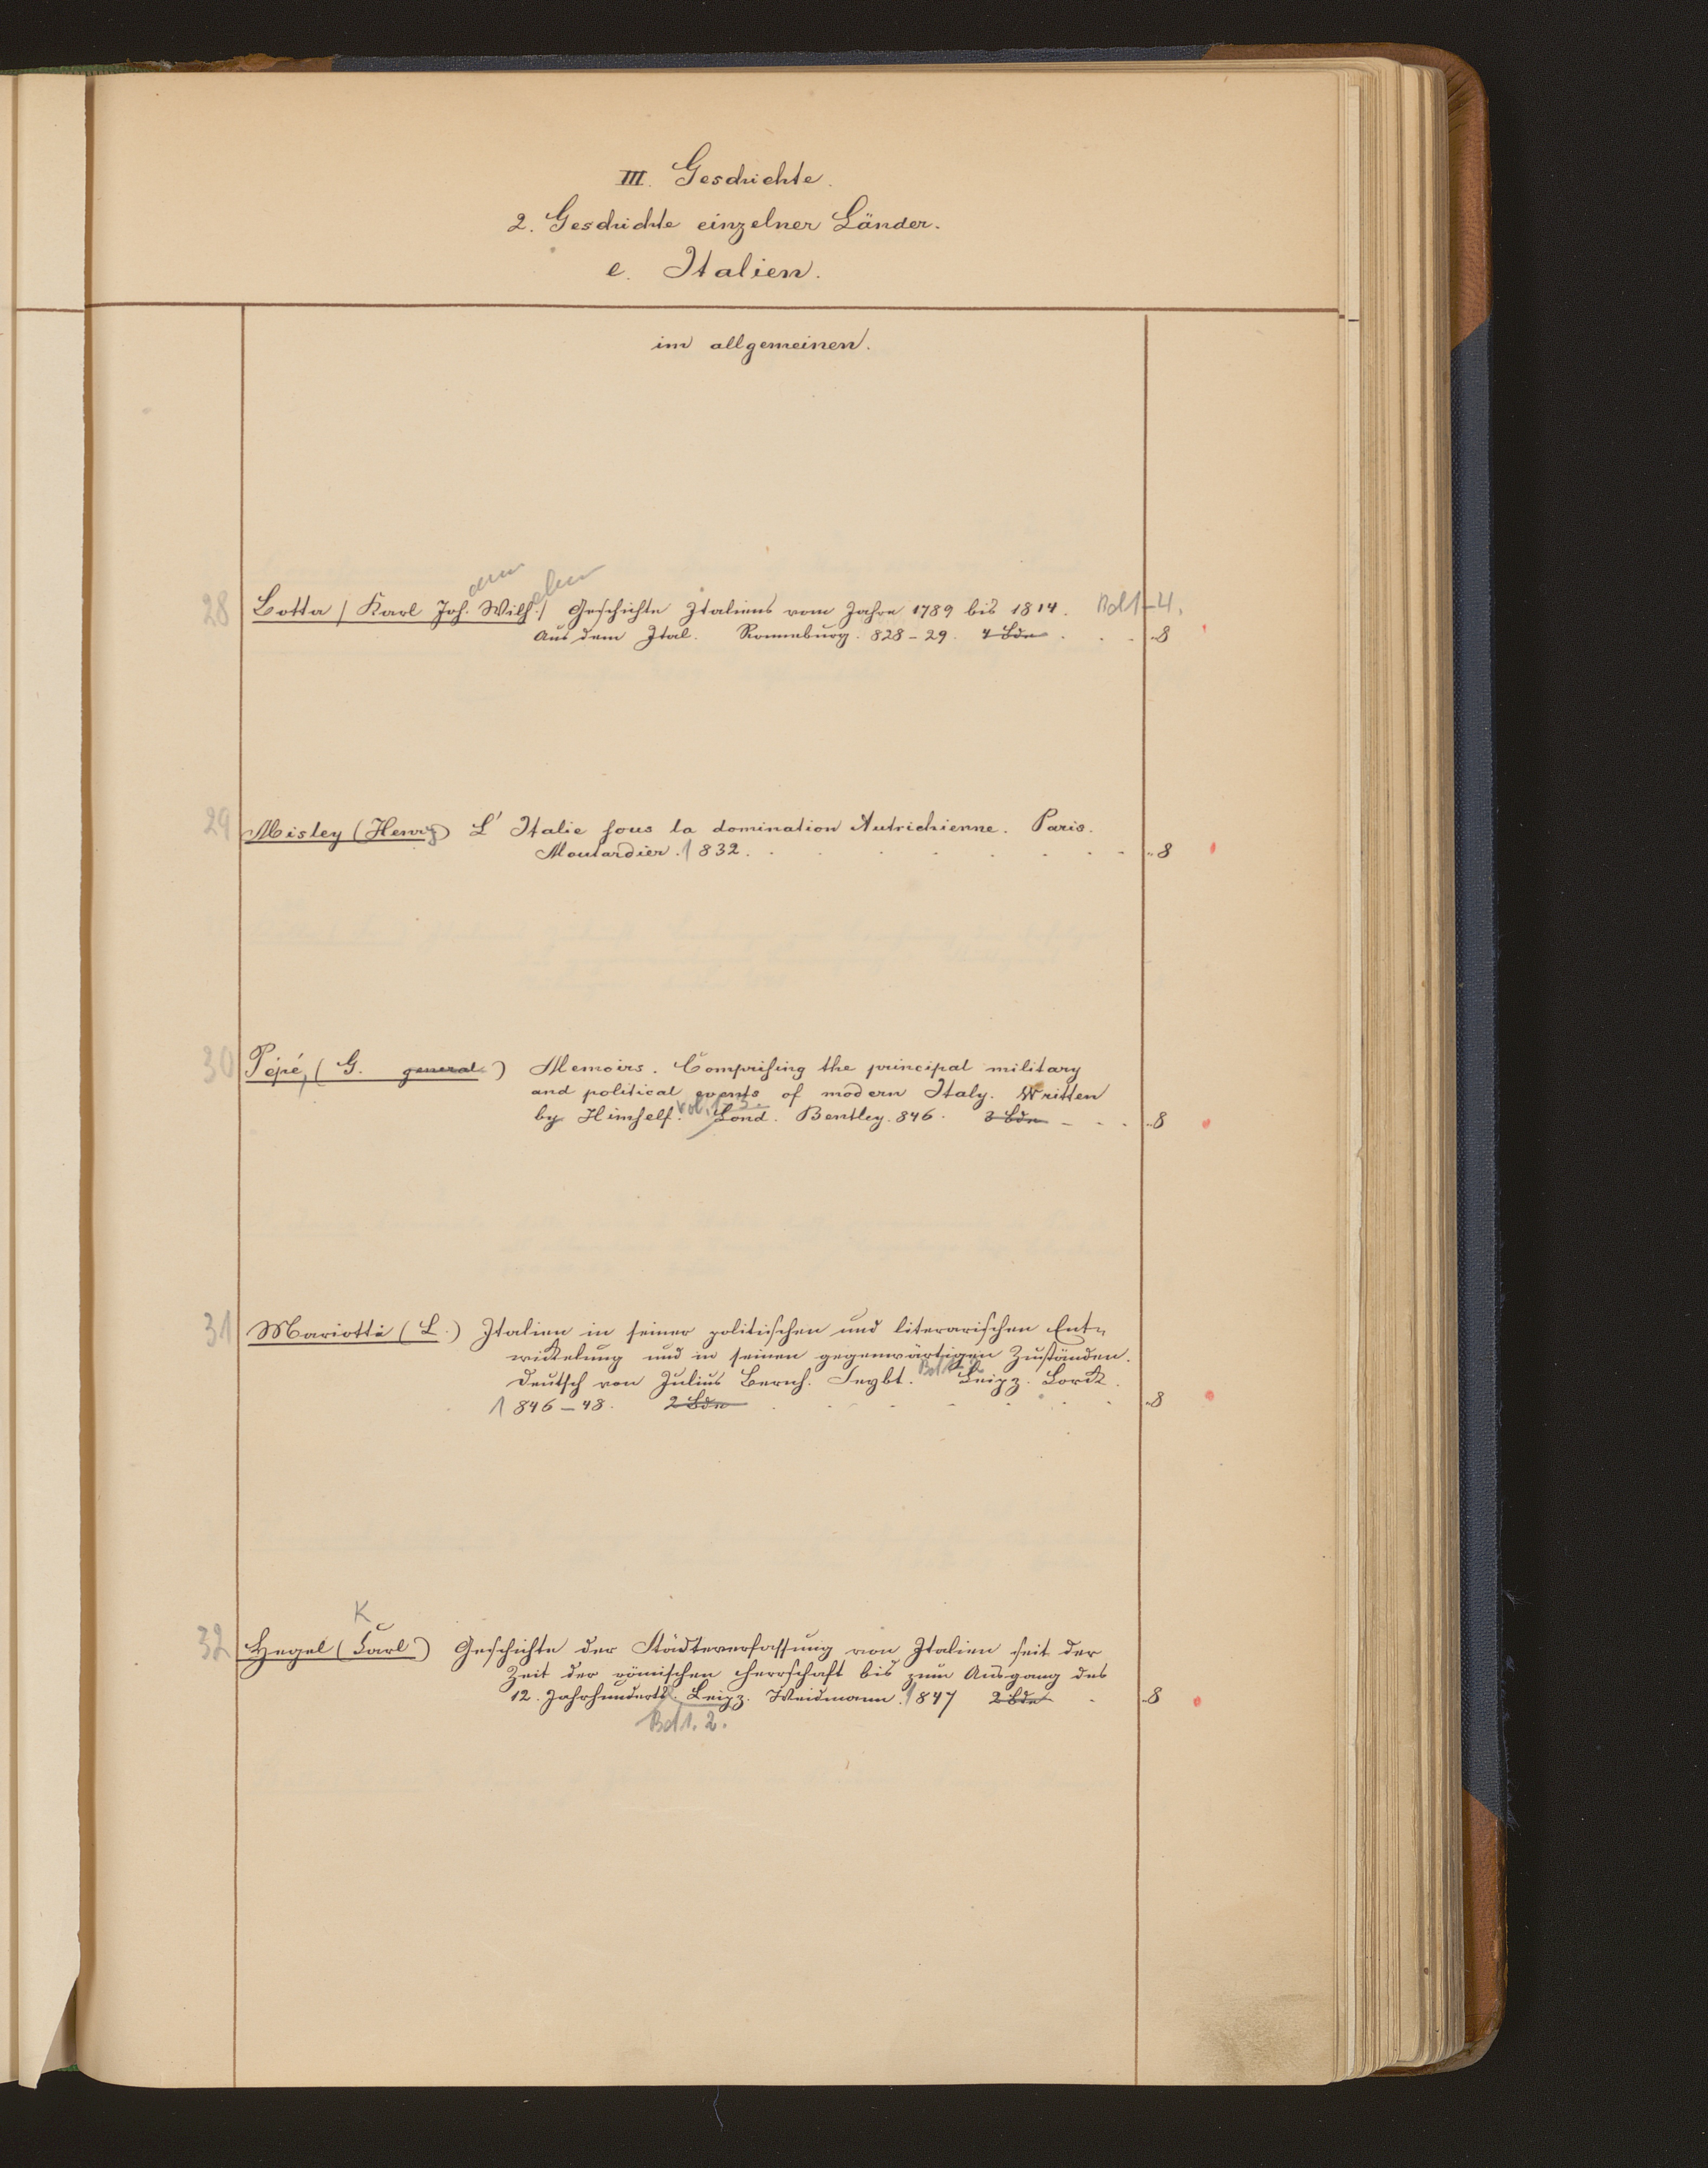 III. Geschichte.
2. Geschichte einzelner Länder.
e. Italien.
im allgemeinen.
ann elm
28 Botta / Karl Joh. Wilh. / Geschichte Italiens vom Jahre 1789 bis 1814. Bd 1-4.
Aus dem Ital. Ronneburg. 828-29. 4 Bde . . . 8
29 Misley (Henry) L' Italie sous la domination Autrichienne. Paris.
Moutardier. 1832. . . . . . . . 8
30 Pépé, (G. general.) Memoirs. Comprising the principal military
and political events of modern Italy. Written
by Himself. Vol. 1-3. Lond. Bentley. 846. 3 Bde - . . 8
31 Mariotti (L.) Italien in seiner politischen und literarischen Ent-
wickelung und in seinen gegenwärtigen Zuständen.
Deutsch von Julius Bernh. Seybt. Bd 1. 2. Leipz. Lorck.
1846-48. 2 Bde . . . . . . . 8
K
32 Hegel (Carl) Geschichte der Städteverfassung von Italien seit der
Zeit der römischen Herrschaft bis zum Ausgang des
12. Jahrhunderts. Leipz. Weidmann. 1847 2 Bde . 8
Bd 1. 2.